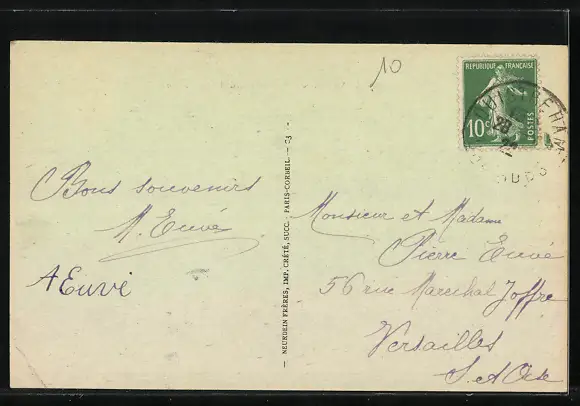 10
RÉPUBLIQUE FRANÇAISE
10c
POSTES
Bons souvenirs
M. Euvé
A Euvé
NEURDEIN FRÈRES, IMP. CRÉTÉ, SUCC. - PARIS-CORBEIL. -
Monsieur et Madame
Pierre Euvé
56 rue Marechal Joffre
Versailles
S. et Oise